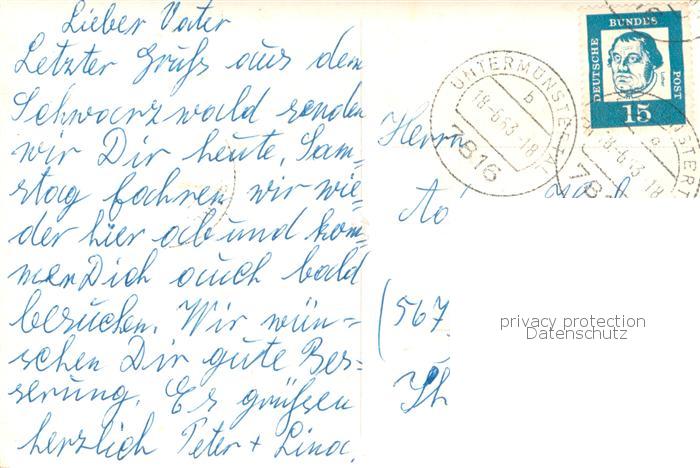 Lieber Vater
Letzter Gruß aus dem
Schwarzwald senden
wir Dir heute. Sam-
stag fahren wir wie-
der hier ab und kom-
men Dich auch bald
besuchen. Wir wün-
schen Dir gute Bes-
serung. Es grüßen
herzlich Peter + Lina.
DEUTSCHE
BUNDES
POST
Luther
15
UNTERMÜNSTERTAL
b
18-6.63-18
7816
18-6.63-18
Herrn
(567
privacy protection
Datenschutz